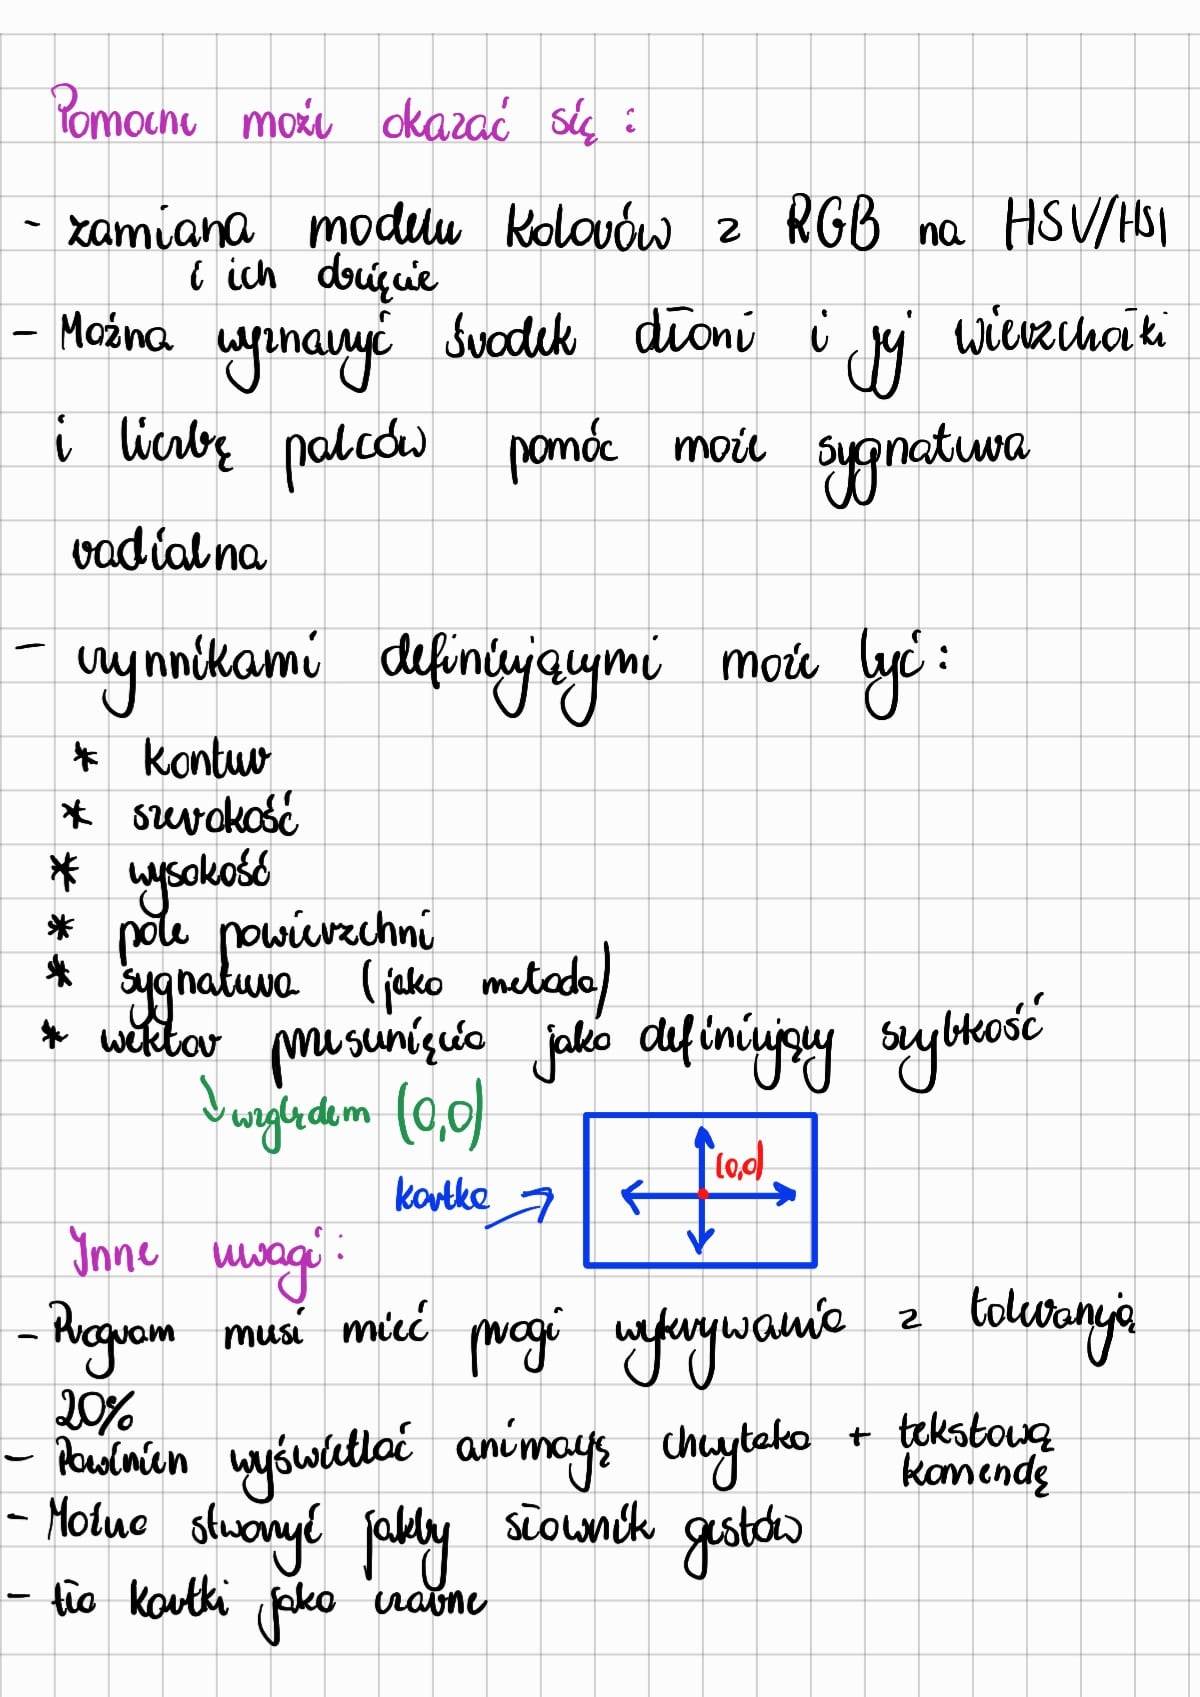 Pomocne może okazać się:
- zamiana modelu kolorów z RGB na HSV/HSI
i ich docięcie
- Można wyznaczyć środek dłoni i jej wierzchołki
i liczbę palców pomóc może sygnatura
radialna
- czynnikami definiującymi może być:
* kontur
* szerokość
* wysokość
* pole powierzchni
* sygnatura (jako metoda)
* wektor przesunięcia jako definiujący szybkość
względem (0,0)
(0,0)
kartka
Inne uwagi:
- Program musi mieć progi wykrywania z tolerancją
20%
- Powinien wyświetlać animację chwytaka + tekstową
komendę
- Można stworzyć jakby słownik gestów
- tło kartki jako czarne